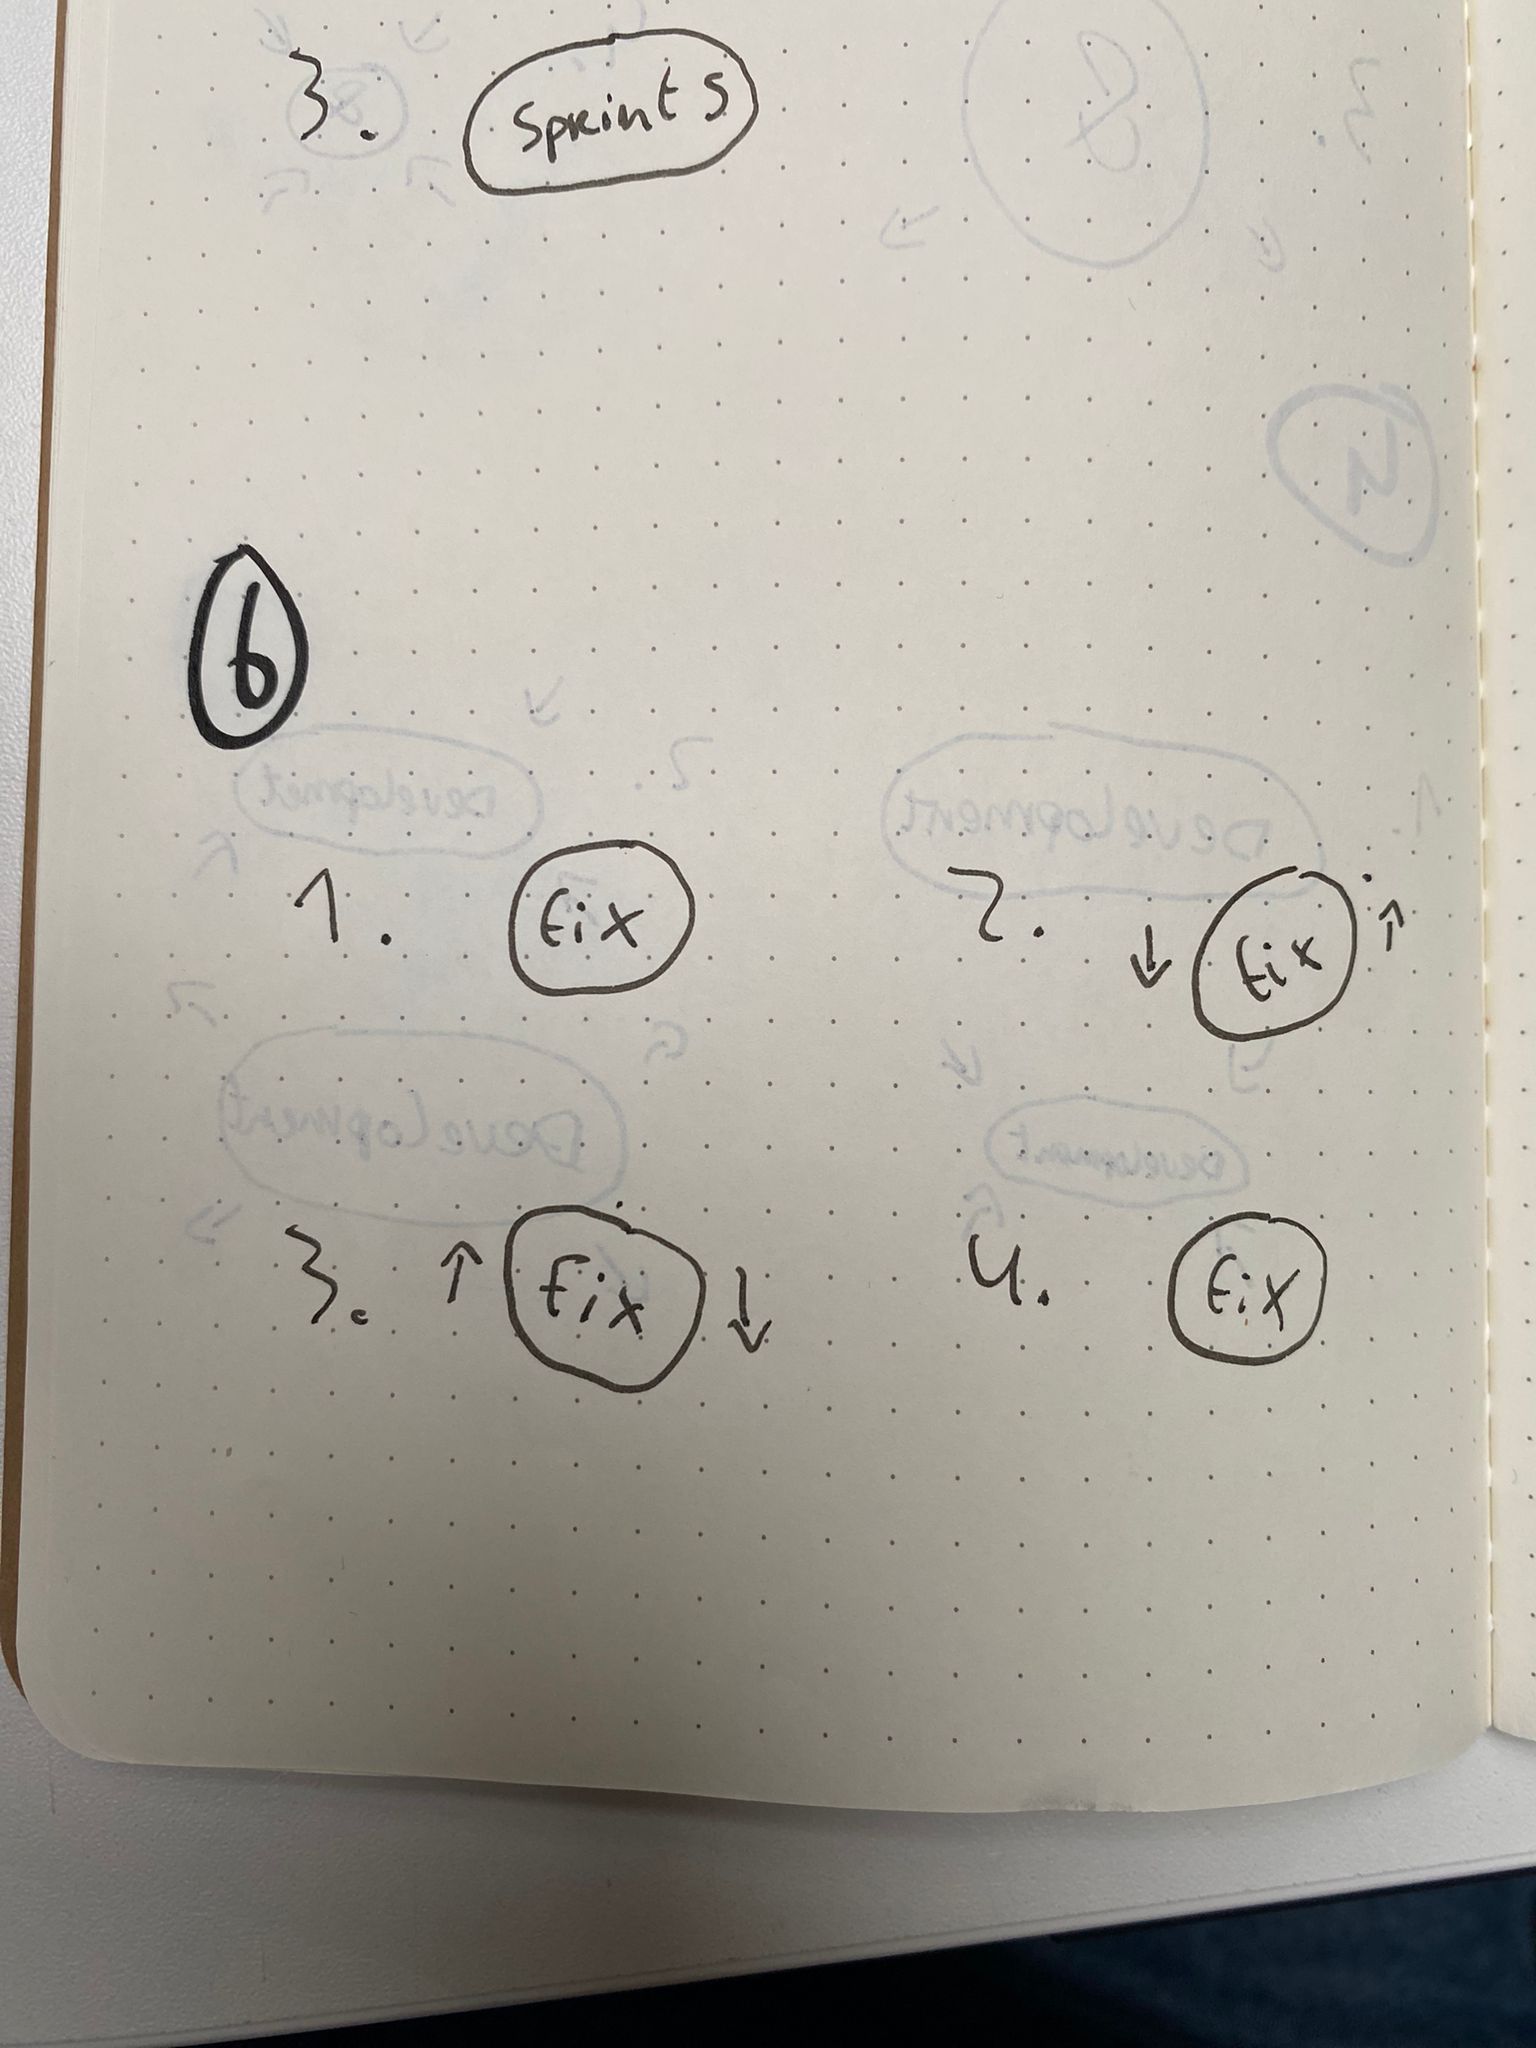 3. Sprints
6
1. fix
2. ↓ fix ↑
3. ↑ fix ↓
4. fix